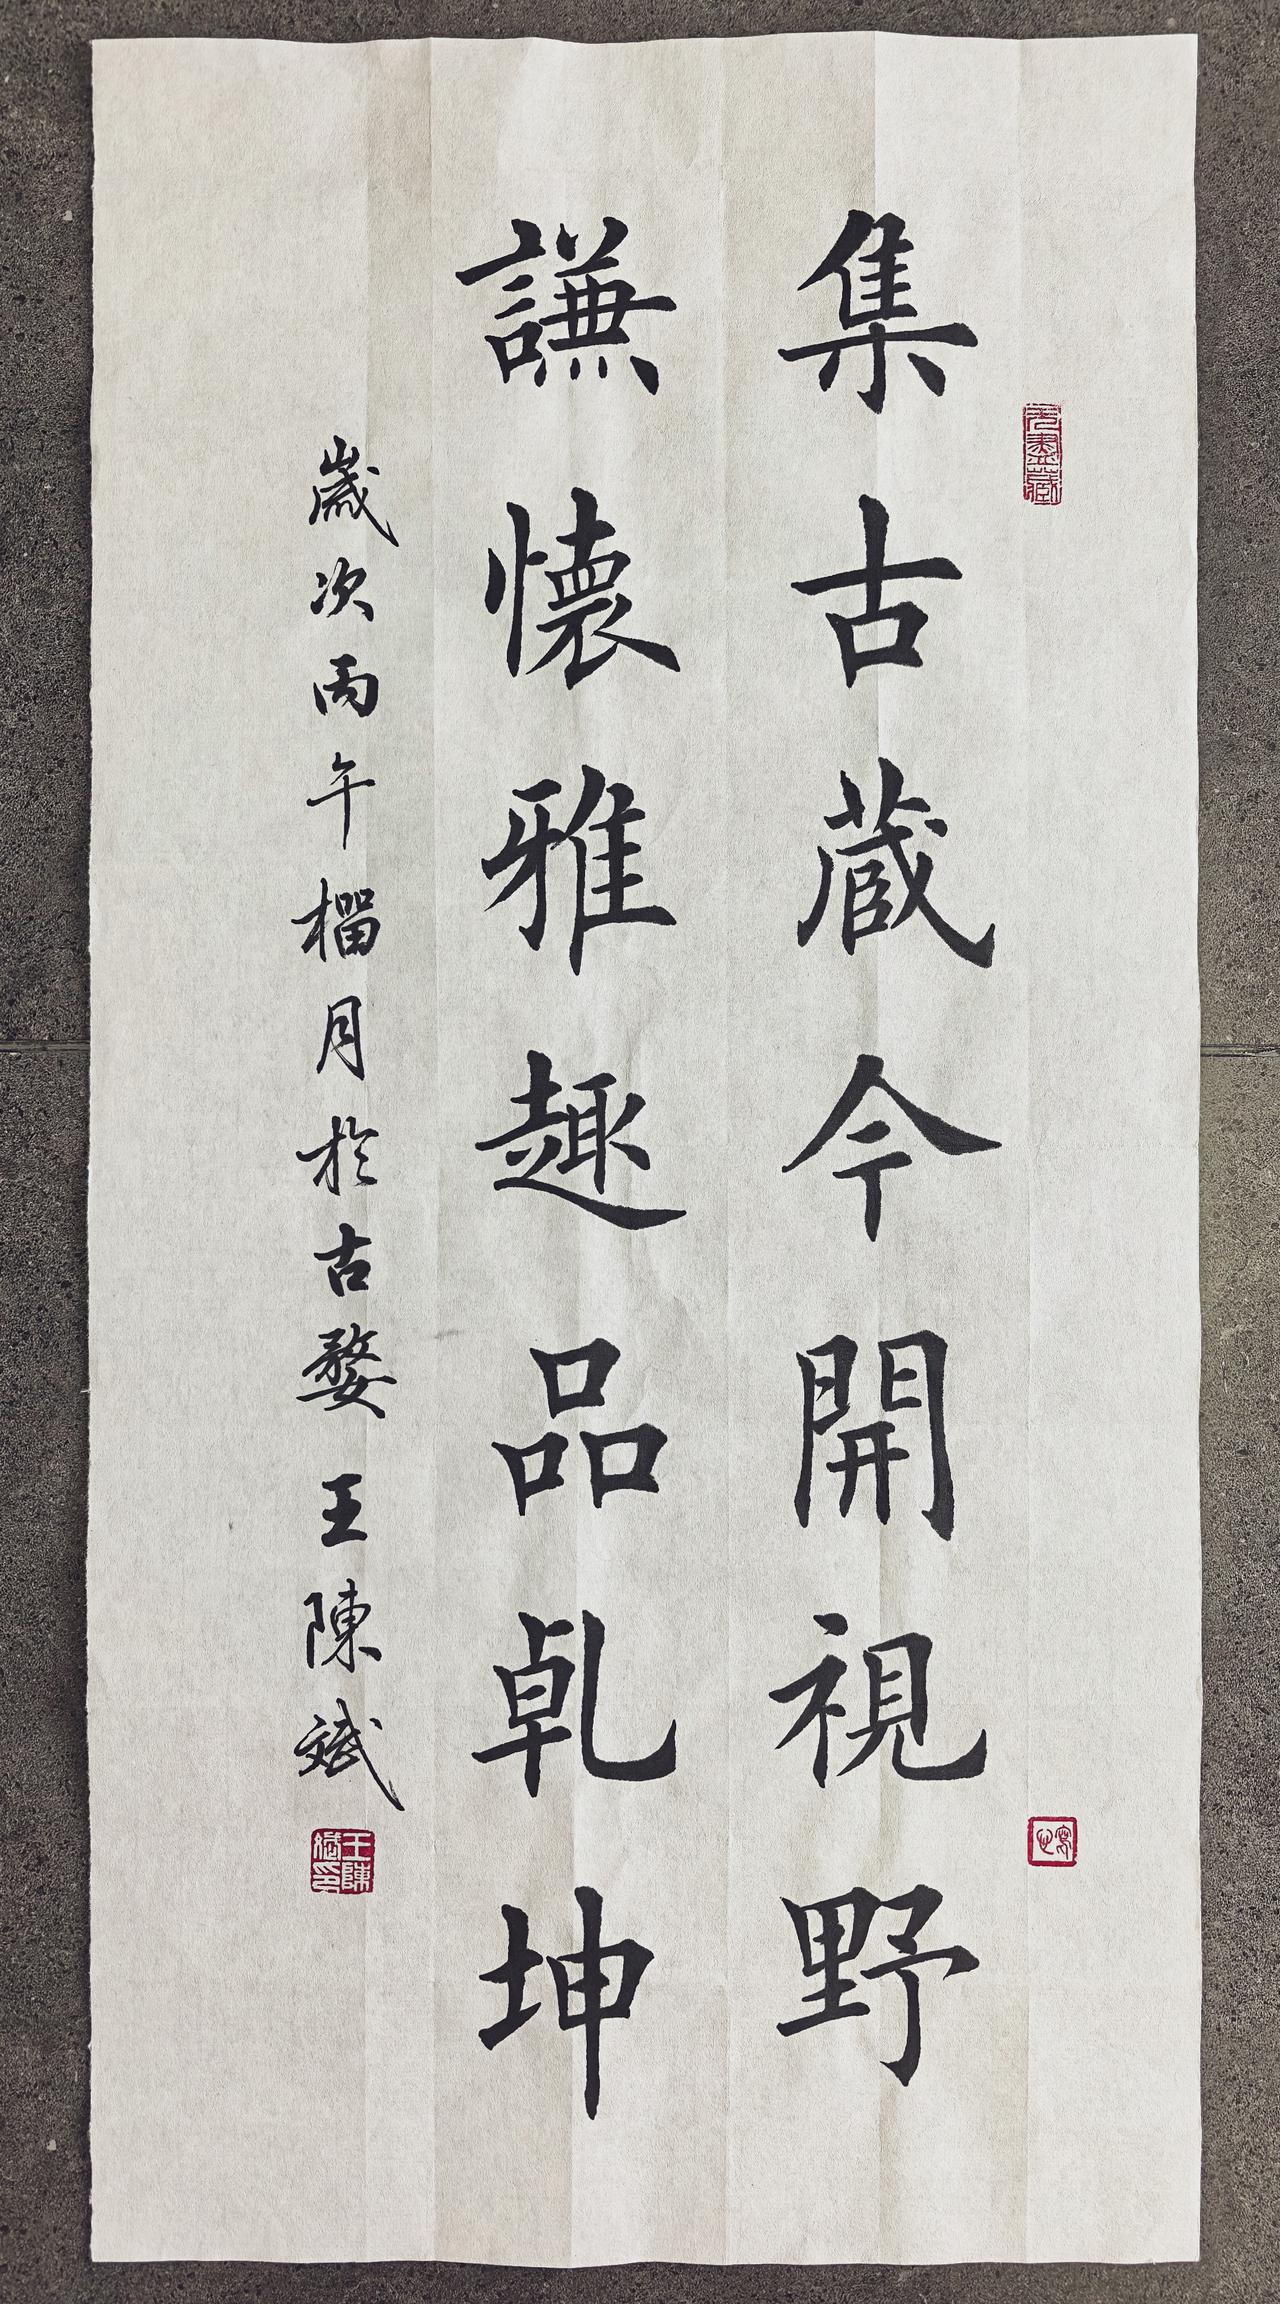 集古蔵今開視野
謙懷雅趣品乹坤
歲次丙午榴月於古婺 王陳斌
无盡藏
王陳斌印